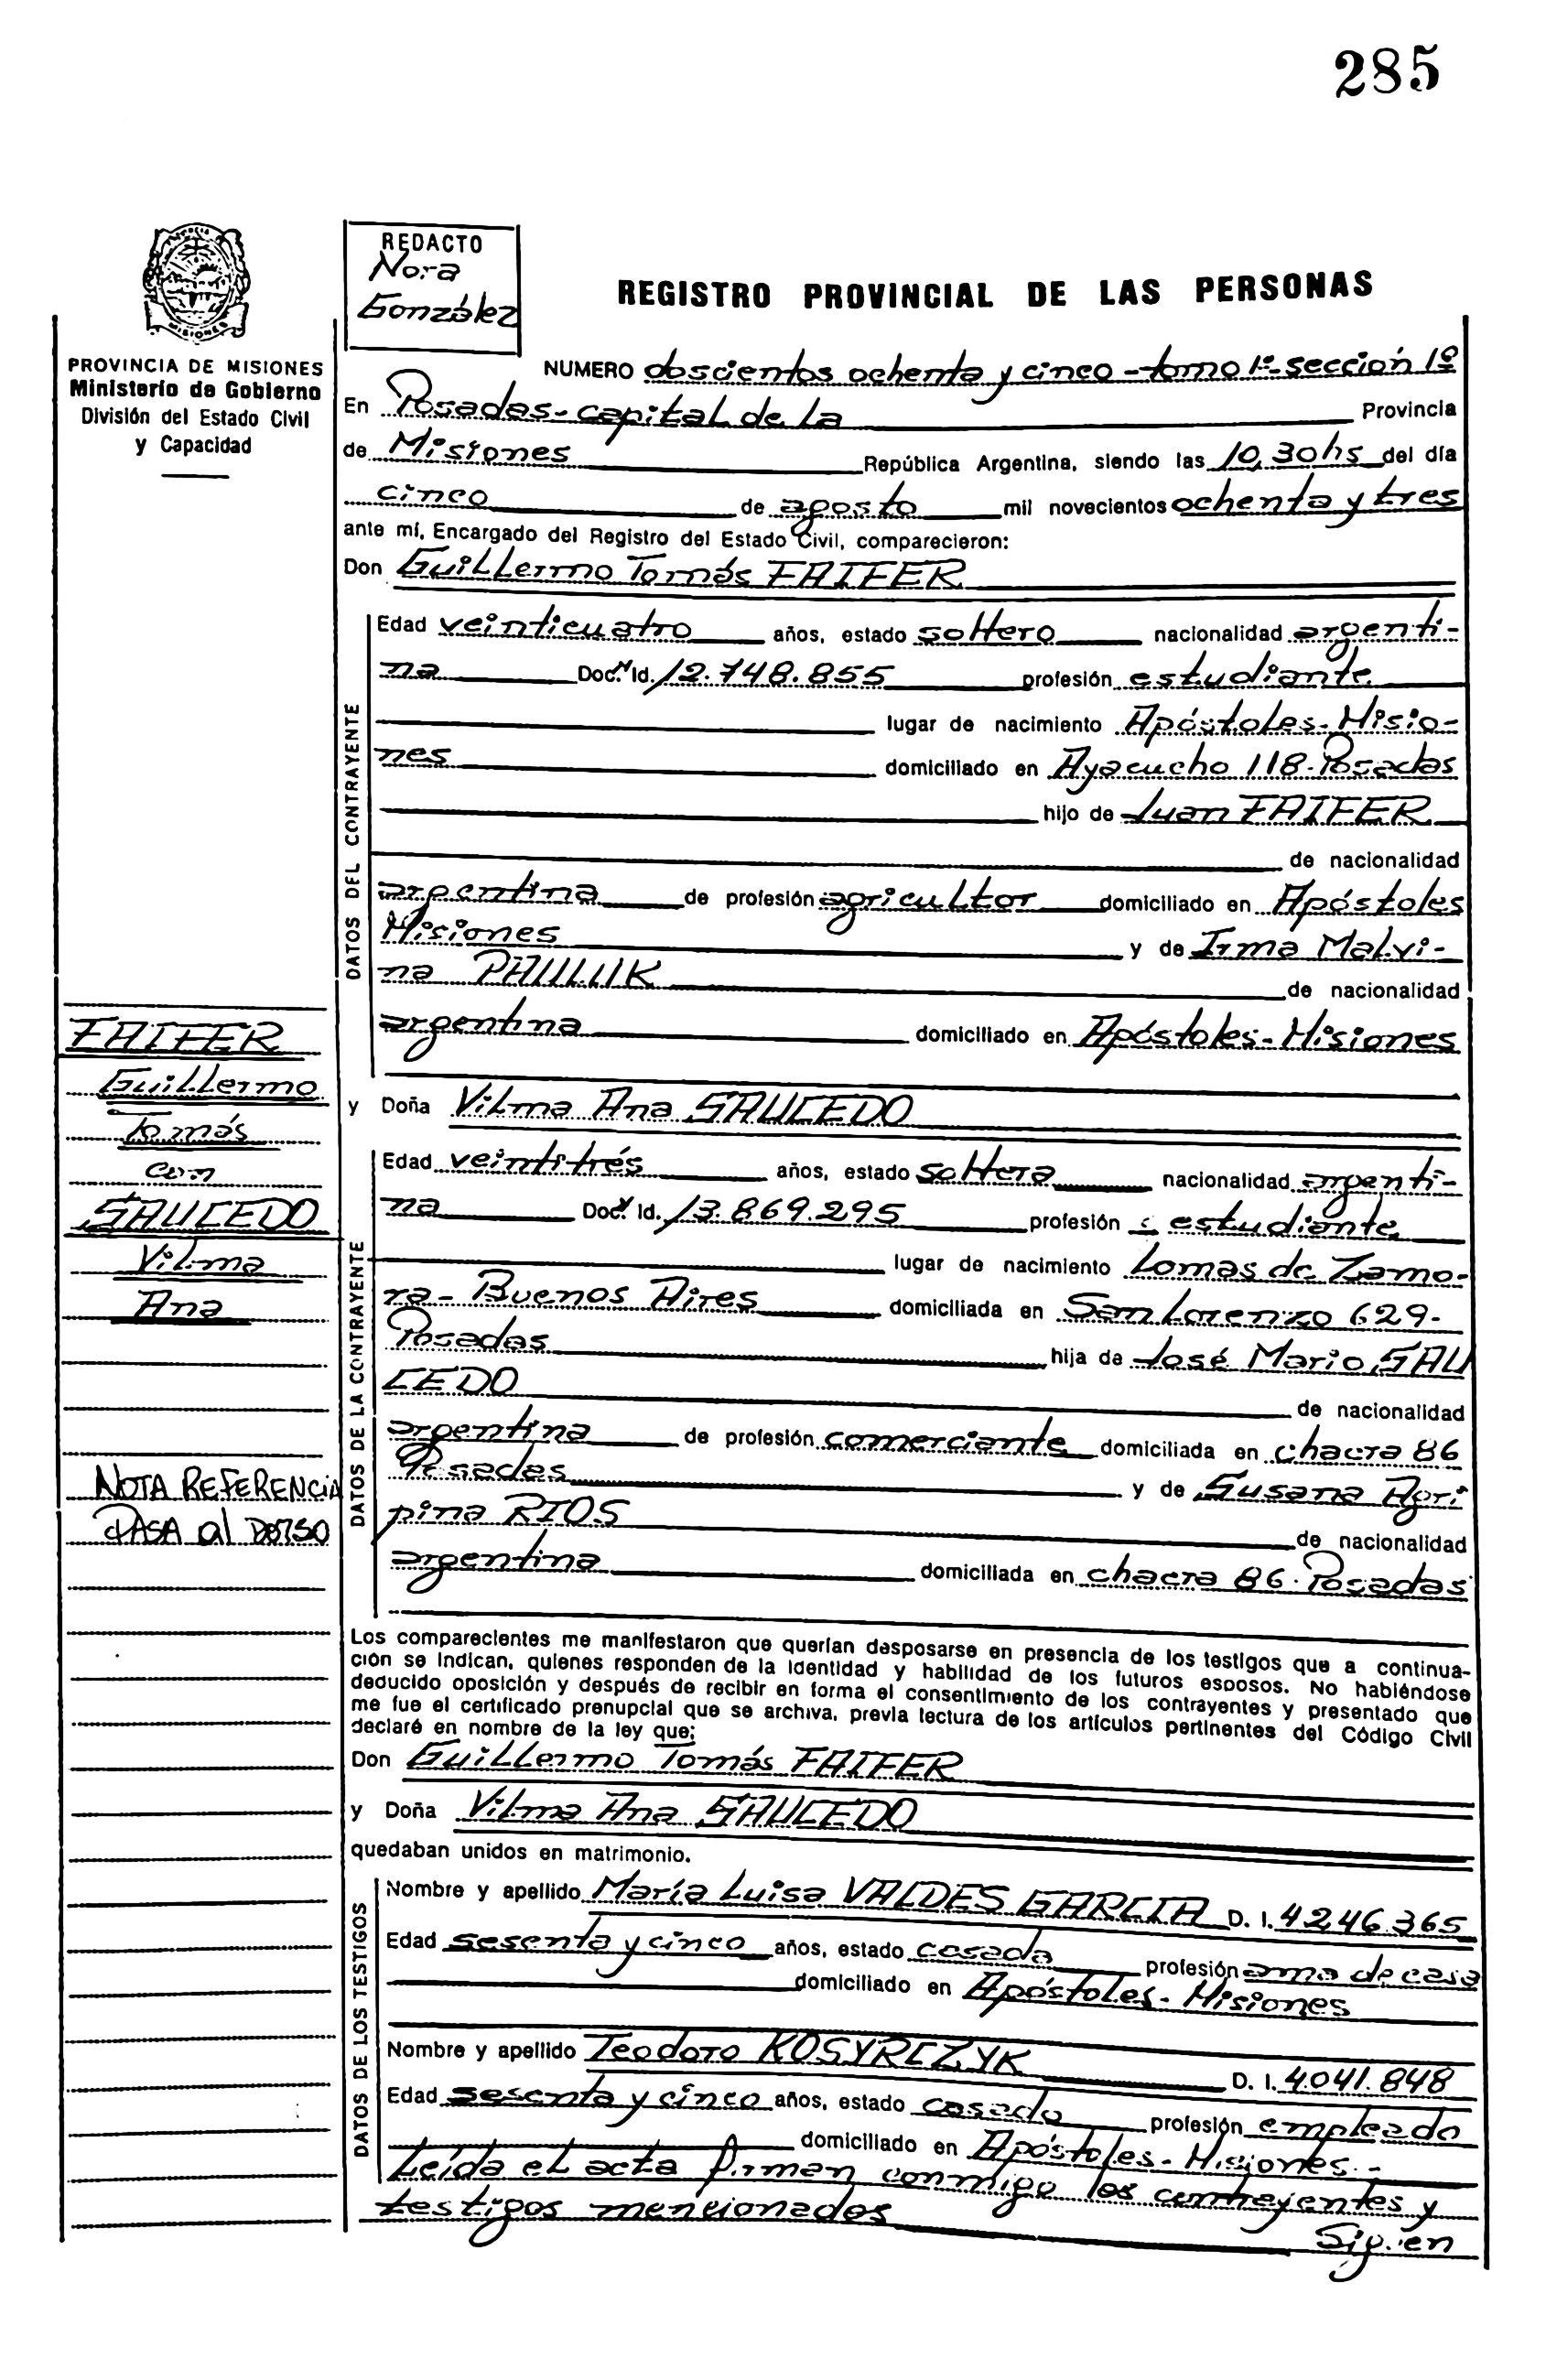 285
REDACTO
Nora
González
MISIONES
PROVINCIA DE MISIONES
Ministerio de Gobierno
División del Estado Civil
y Capacidad
REGISTRO PROVINCIAL DE LAS PERSONAS
NUMERO doscientos ochenta y cinco - tomo 1º - sección 1º
En Posadas - capital de la Provincia
de Misiones República Argentina, siendo las 10,30 hs del día
cinco de agosto mil novecientos ochenta y tres
ante mí, Encargado del Registro del Estado Civil, comparecieron:
Don Guillermo Tomás FAIFER
DATOS DEL CONTRAYENTE
Edad veinticuatro años, estado soltero nacionalidad argenti-
na Doc. Id. 12.748.855 profesión estudiante
lugar de nacimiento Apóstoles - Misio-
nes domiciliado en Ayacucho 118 - Posadas
hijo de Juan FAIFER
de nacionalidad
argentina de profesión agricultor domiciliado en Apóstoles
Misiones y de Irma Malvi-
na PAULUK de nacionalidad
argentina domiciliado en Apóstoles - Misiones
y Doña Vilma Ana SAUCEDO
DATOS DE LA CONTRAYENTE
Edad veintitrés años, estado soltera nacionalidad argenti-
na Doc. Id. 13.869.295 profesión estudiante
lugar de nacimiento Lomas de Zamo-
ra - Buenos Aires domiciliada en San Lorenzo 629 -
Posadas hija de José Mario SAU
CEDO de nacionalidad
argentina de profesión comerciante domiciliada en chacra 86
Posadas y de Susana Agri
pina RIOS de nacionalidad
argentina domiciliada en chacra 86 - Posadas
FAIFER
Guillermo
Tomás
con
SAUCEDO
Vilma
Ana
NOTA REFERENCIA
PASA al DORSO
Los comparecientes me manifestaron que querían desposarse en presencia de los testigos que a continua-
ción se indican, quienes responden de la identidad y habilidad de los futuros esposos. No habiéndose
deducido oposición y después de recibir en forma el consentimiento de los contrayentes y presentado que
me fue el certificado prenupcial que se archiva, previa lectura de los artículos pertinentes del Código Civil
declaré en nombre de la ley que;
Don Guillermo Tomás FAIFER
y Doña Vilma Ana SAUCEDO
quedaban unidos en matrimonio.
DATOS DE LOS TESTIGOS
Nombre y apellido María Luisa VALDES GARCIA D. I. 4246.365
Edad sesenta y cinco años, estado casada profesión ama de casa
domiciliado en Apóstoles - Misiones
Nombre y apellido Teodoro KOSYRCZYK D. I. 4.041.848
Edad sesenta y cinco años, estado casado profesión empleado
domiciliado en Apóstoles - Misiones -
Leída el acta firman conmigo los contrayentes y
testigos mencionados
Siguen